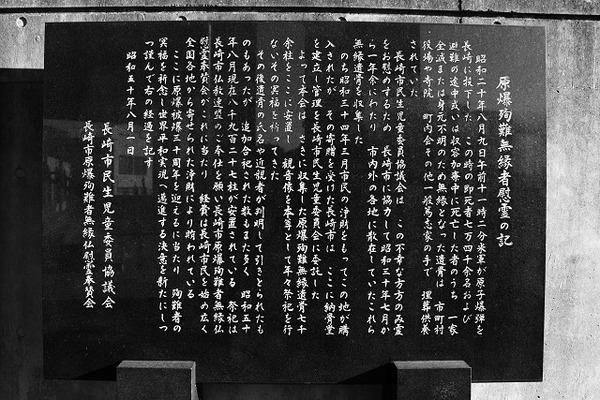 原爆殉難無縁者慰霊の記
昭和二十年八月九日午前十一時二分米軍が原子爆弾を
長崎に投下した この時の即死者七万四千余名および
避難の途中或いは収容加養中に死亡した者のうち 一家
全滅または身元不明のため無縁となった遺骨は 市町村
役場や寺院 町内会その他一般篤志家の手で 埋葬供養
されていた
長崎市民生児童委員協議会は この不幸な方方のみ霊
をお慰めするため 長崎市に協力して昭和三十年七月か
ら一年余にわたり 市内外の各地に散在していたこれら
無縁遺骨を収集した
のち昭和三十四年三月市民の浄財をもってこの地が購
入されたが その寄贈を受けた長崎市は ここに納骨堂
を建立し管理を長崎市民生児童委員会に委託した
よって本会は さきに収集した原爆殉難無縁遺骨七千
余柱をここに安置し 観音像を本尊として年々祭祀を行
ない その冥福を祈ってきた
その後遺骨の氏名や近親者が判明して引きとられたも
のもあったが 追加合祀された数もまた多く 昭和五十
年八月現在八千九百二十七柱が安置されている 祭祀は
長崎市仏教連盟のご奉仕を願い長崎市原爆殉難者無縁仏
慰霊奉賛会がこれに当たり 経費は長崎市民を始め広く
全国各地から寄せられた浄財により賄われている
ここに原爆被爆三十周年を迎えるに当たり 殉難者の
冥福を祈念し世界平和実現へ邁進する決意を新たにしつ
つ謹んで右の経過を記す
昭和五十年八月一日
長崎市民生児童委員協議会
長崎市原爆殉難者無縁仏慰霊奉賛会